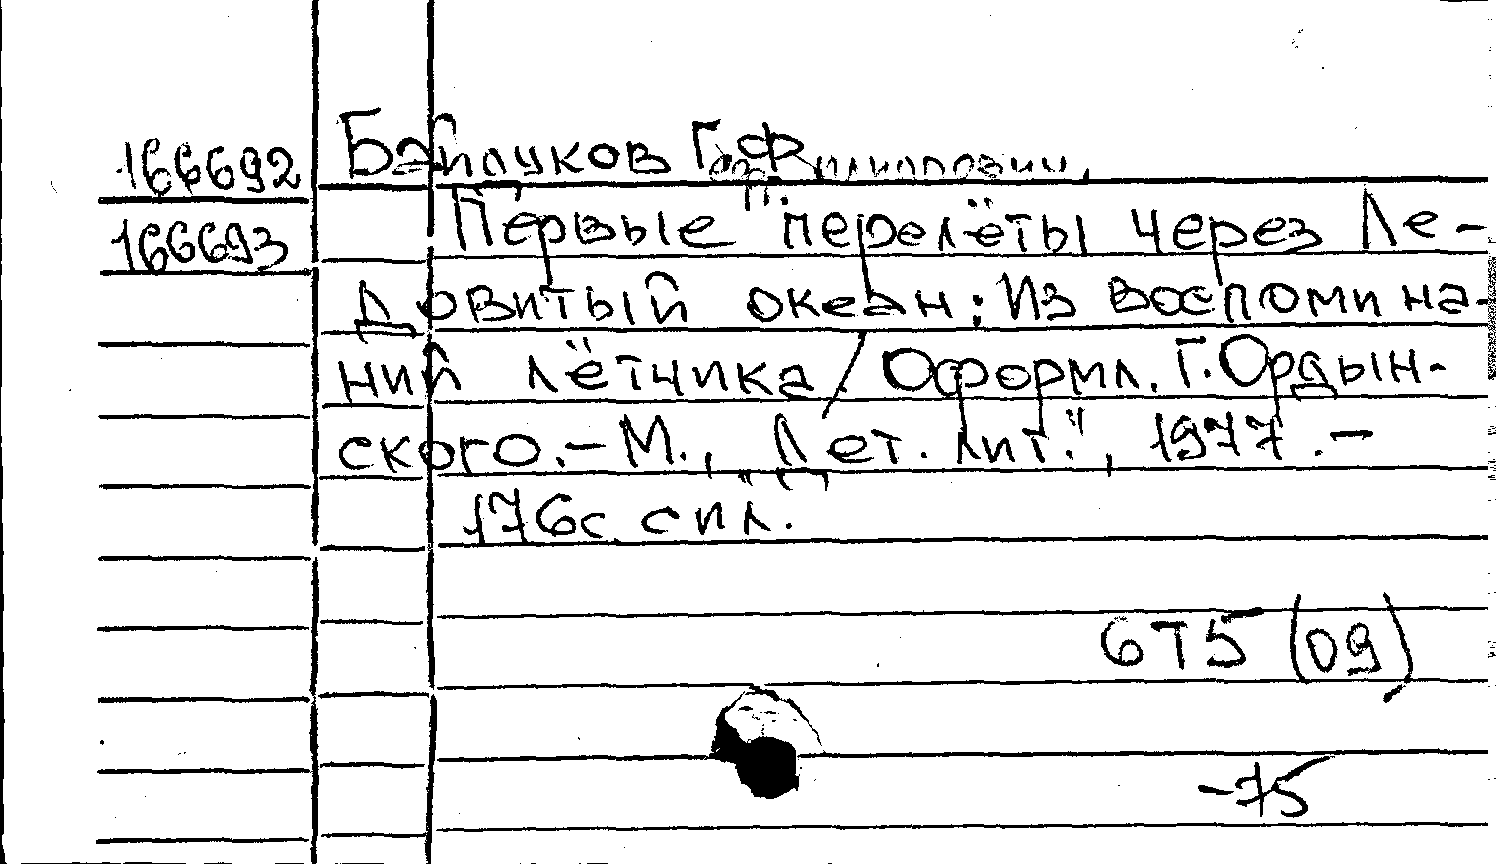 166692 Байдуков Г. Филиппович.
166693 Первые перелёты через Ле-
довитый океан: Из воспомина-
ний лётчика / Оформл. Г. Ордын-
ского. - М., „Дет. лит.", 1977. -
176с. с ил.
6Т5 (09)
-75